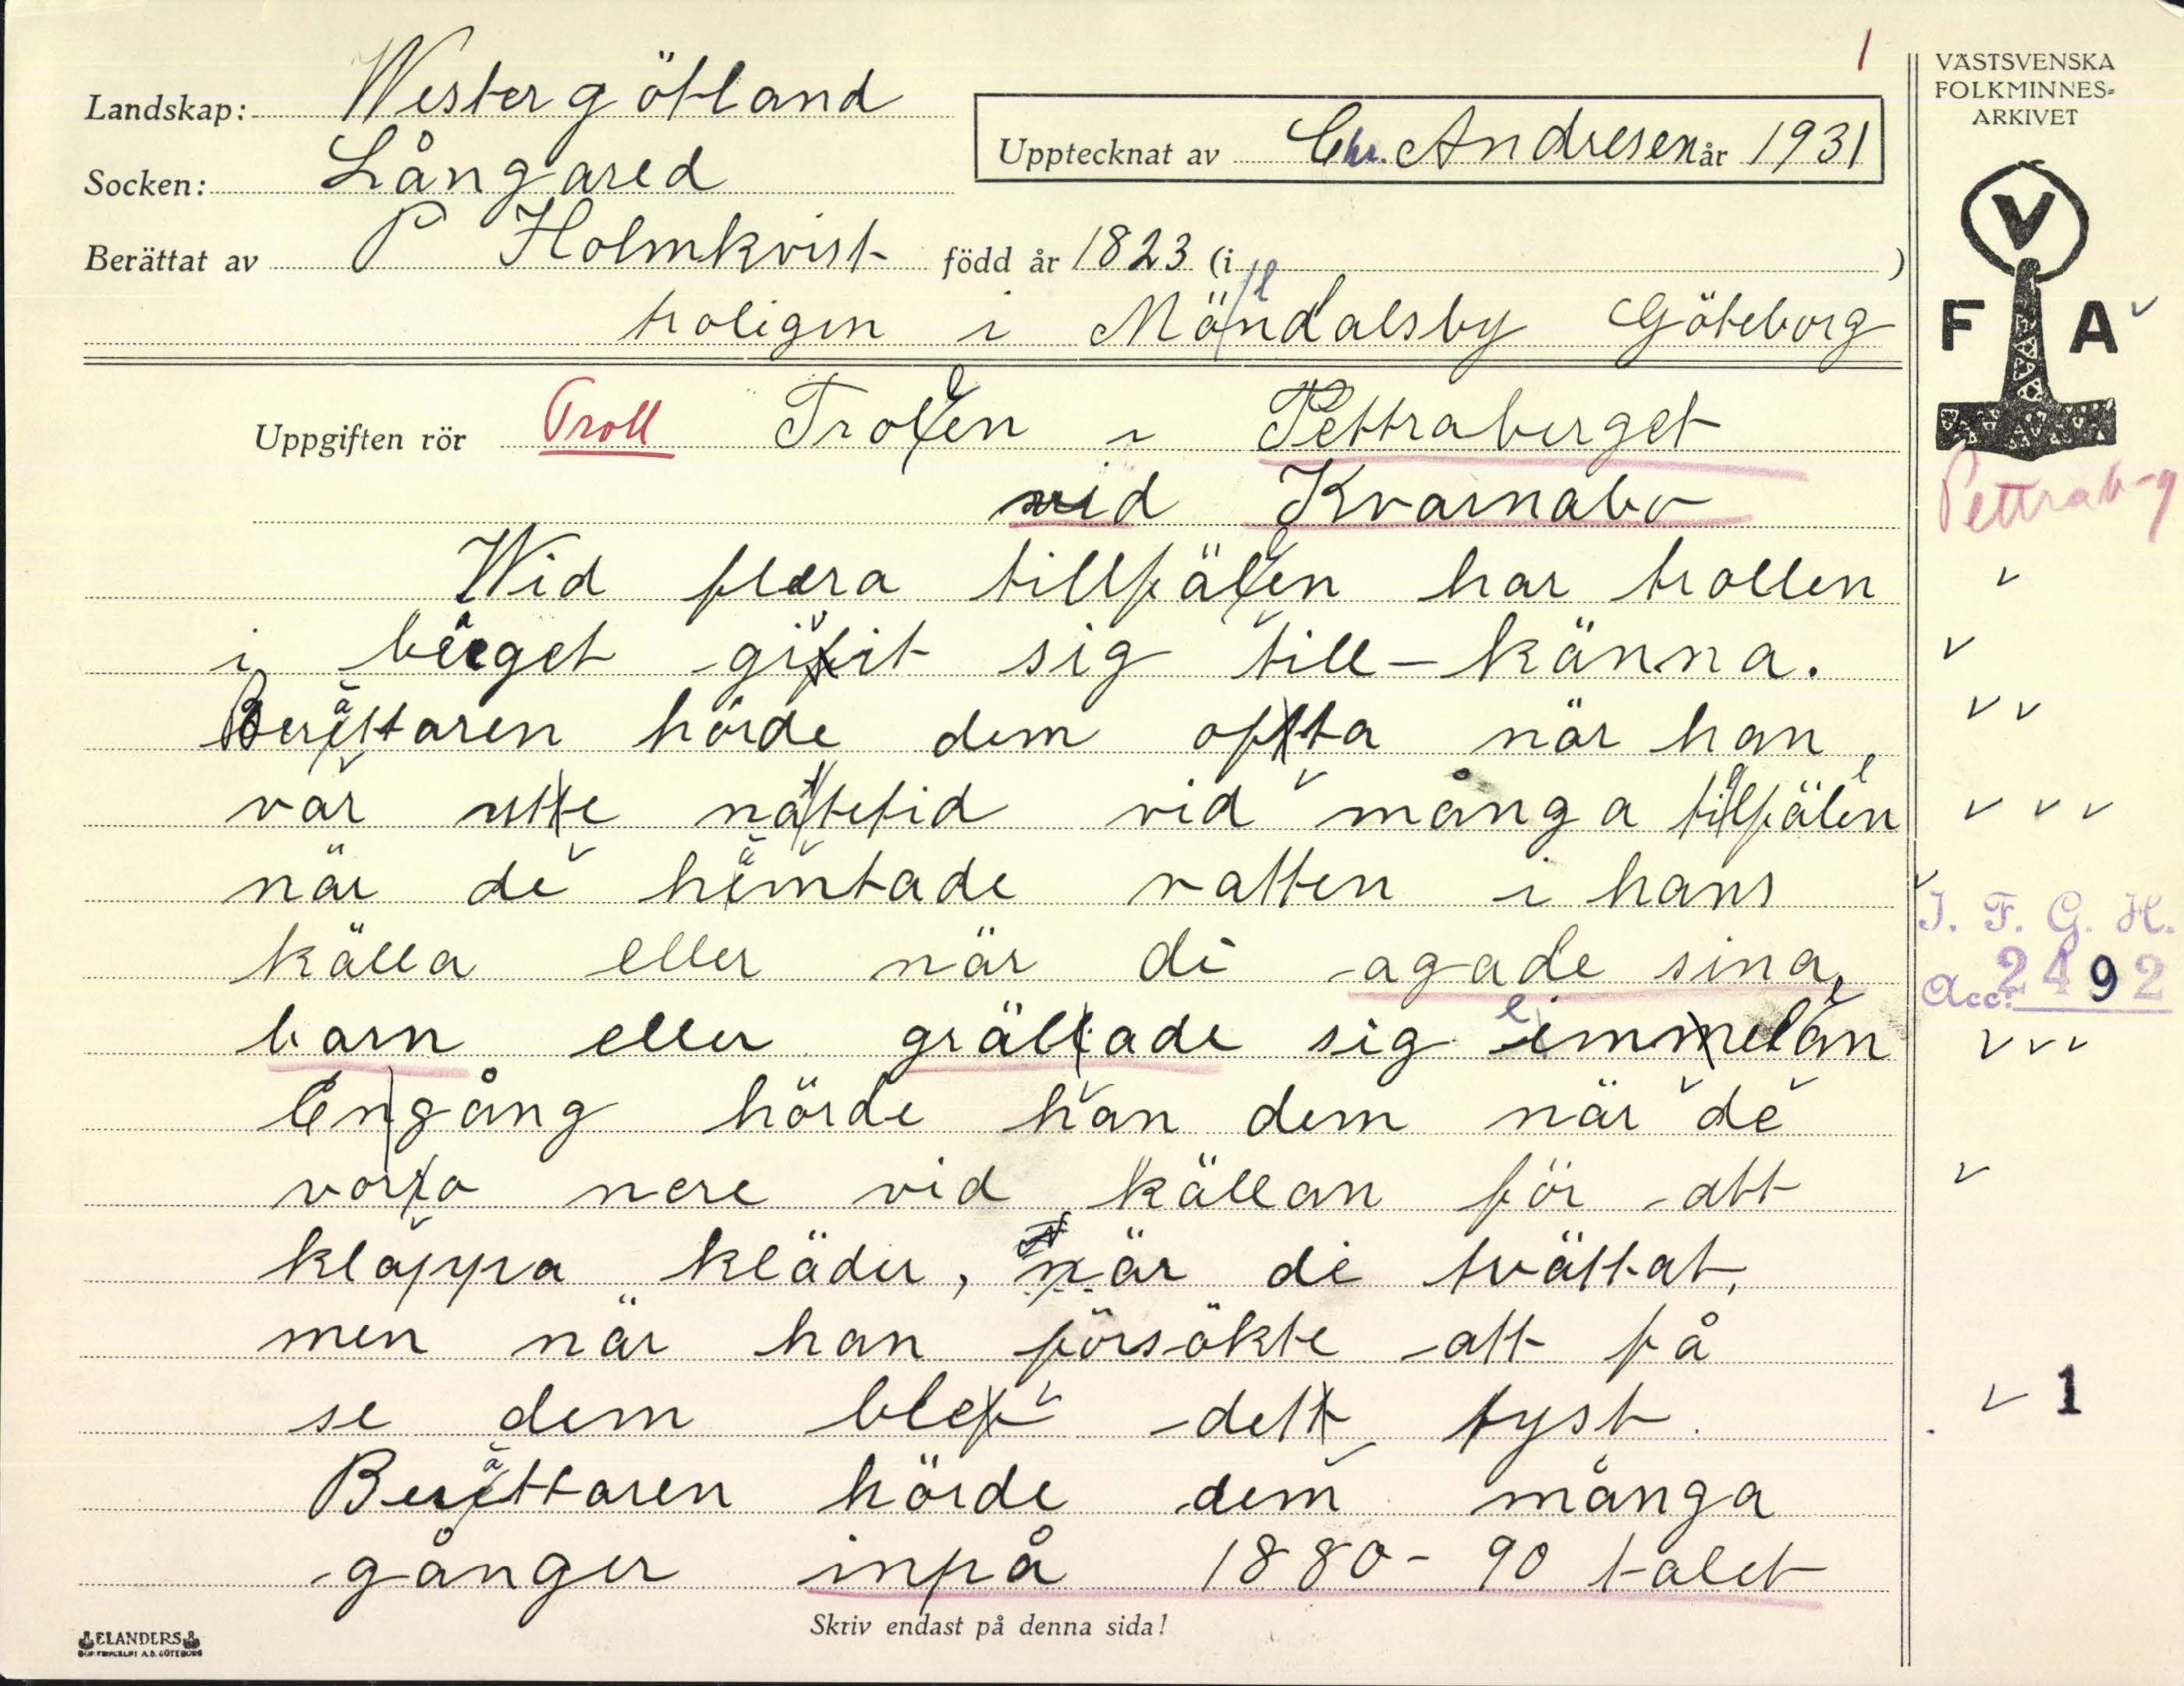 1
VÄSTSVENSKA
FOLKMINNES-
ARKIVET
Landskap: Westergötland
Upptecknat av Chr. Andresen år 1931
Socken: Långared
Berättat av P Holmkvist född år 1823 (i )
troligen i Mölndalsby Göteborg
V
F A
Uppgiften rör Troll Trollen i Pettraberget
vid Kvarnabo
Pettrab-g
Wid flera tillfällen har trollen
i berget givit sig till-känna.
Berättaren hörde dem ofta när han
var ute nattetid vid många tillfällen
när de hämtade vatten i hans
källa eller när de agade sina
barn eller grälade sig emellan
En gång hörde han dem när de
voro nere vid källan för att
klappa kläder, när de tvättat,
men när han försökte att få
se dem blev det tyst.
Berättaren hörde dem många
gånger inpå 1880-90 talet
I. F. G. H.
Acc: 2492
1
Skriv endast på denna sida!
ELANDERS